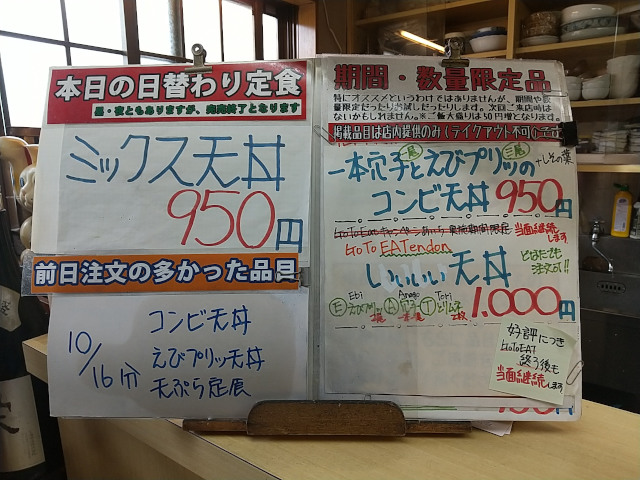 本日の日替わり定食
昼・夜ともありますが、完売終了となります
ミックス天丼
950円
前日注文の多かった品目
10/16分
コンビ天丼
えびプリッ天丼
天ぷら定食
期間・数量限定品
特にオススメというわけではありませんが、期間や数
量限定だったりお試しだったりします。次回ご来店時は
ないかもしれません。※ご飯大盛りは50円増となります。
掲載品目は店内提供のみ(テイクアウト不可)です
一本穴子とえびプリッの
二尾
+しその葉
コンビ天丼 950円
GoToEatキャンペーン
期間限定
当面継続します
GoTo EATendon
いいいい天丼
どなたでも
注文可!!
Ebi Anago Tori
E えびプリッ A 穴子 T とり天
1,000円
好評につき
GoToEAT
終了後も
当面継続します